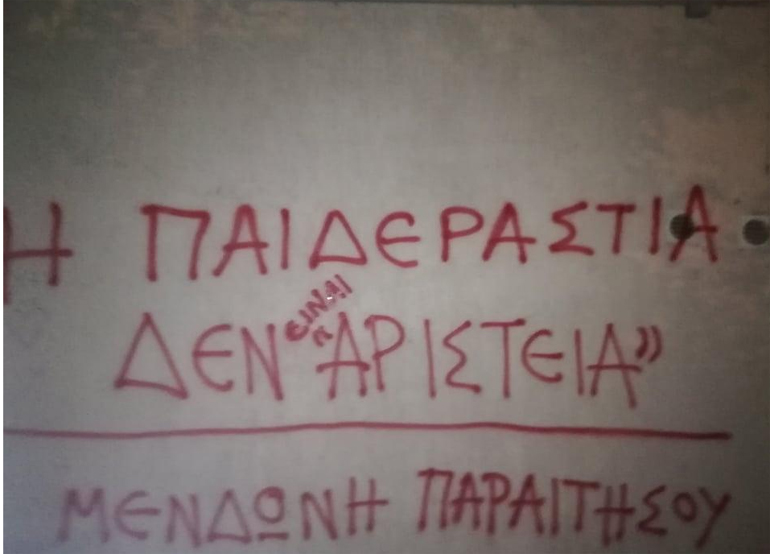 Η ΠΑΙΔΕΡΑΣΤΙΑ
ΔΕΝ ΕΙΝΑΙ "ΑΡΙΣΤΕΙΑ"
ΜΕΝΔΩΝΗ ΠΑΡΑΙΤΗΣΟΥ